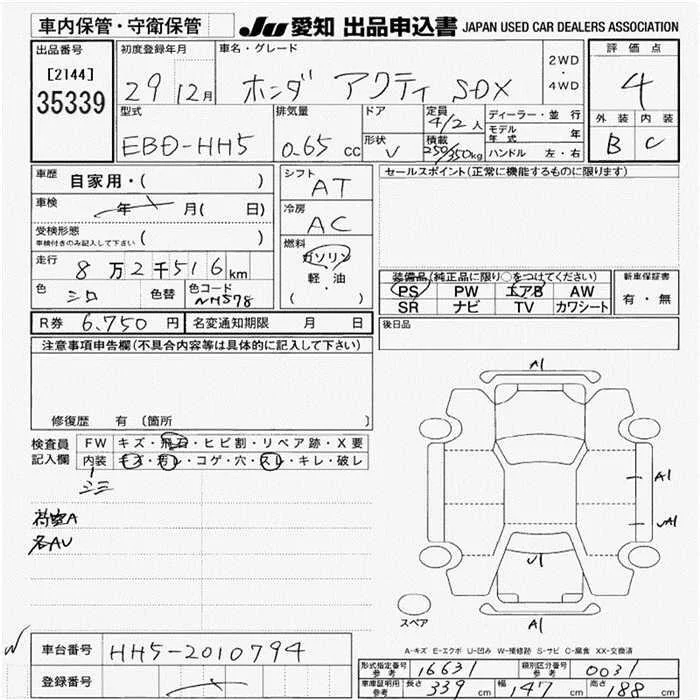 車内保管・守衛保管 JU 愛知 出品申込書 JAPAN USED CAR DEALERS ASSOCIATION
出品番号 初度登録年月 車名・グレード 評価点
[2144] 29 12月 ホンダ アクティ SDX 2WD・4WD 4
35339 型式 排気量 ドア 定員 4/2人 ディーラー・並行 外装 内装
モデル年式 年
EBD-HH5 0.65 cc 形状 V 積載 250/350kg ハンドル 左・右 B C
車歴 自家用・( ) シフト AT セールスポイント(正常に機能するものに限ります)
車検 年 月( 日) 冷房 AC
受検形態 ( )
車検付きのみ記入して下さい
燃料 ガソリン
軽・油
( )
走行 8万2千516km 装備品(純正品に限り○をつけてください) 新車保証書
色 シロ 色替 色コード NH578 PS PW エアB AW 有・無
SR ナビ TV カワシート
R券 6,750 円 名変通知期限 月 日 後日品
注意事項申告欄(不具合内容等は具体的に記入して下さい)
修復歴 有 〔箇所 〕
検査員 FW キズ・飛石・ヒビ割・リペア跡・X要
記入欄 内装 キズ・汚レ・コゲ・穴・スレ・キレ・破レ
シミ
荷室A
各AU
A1
A1
UA1
U1
A1
スペア
A-キズ E-エクボ U-凹み W-補修跡 S-サビ C-腐食 XX-交換済
車台番号 HH5-2010794
登録番号
型式指定番号 参考 16631 類別区分番号 参考 0031
車庫証明用 参考 長さ 339 cm 幅 147 cm 高さ 188 cm